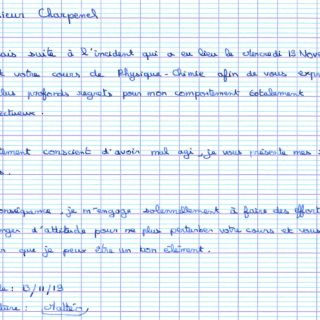 ieur Charpenel
ais suite à l'incident qui a eu lieu le Mercredi 13 Nove
t votre cours de Physique-Chimie afin de vous expr
lus profonds regrets pour mon comportement totalement
ectueux.
tement conscient d'avoir mal agi, je vous présente mes
s.
onséquence, je m'engage solennellement à faire des effort
nger d'attitude pour ne plus perturber votre cours et vous
r que je peux être un bon élément.
e : 13/11/19
ture :